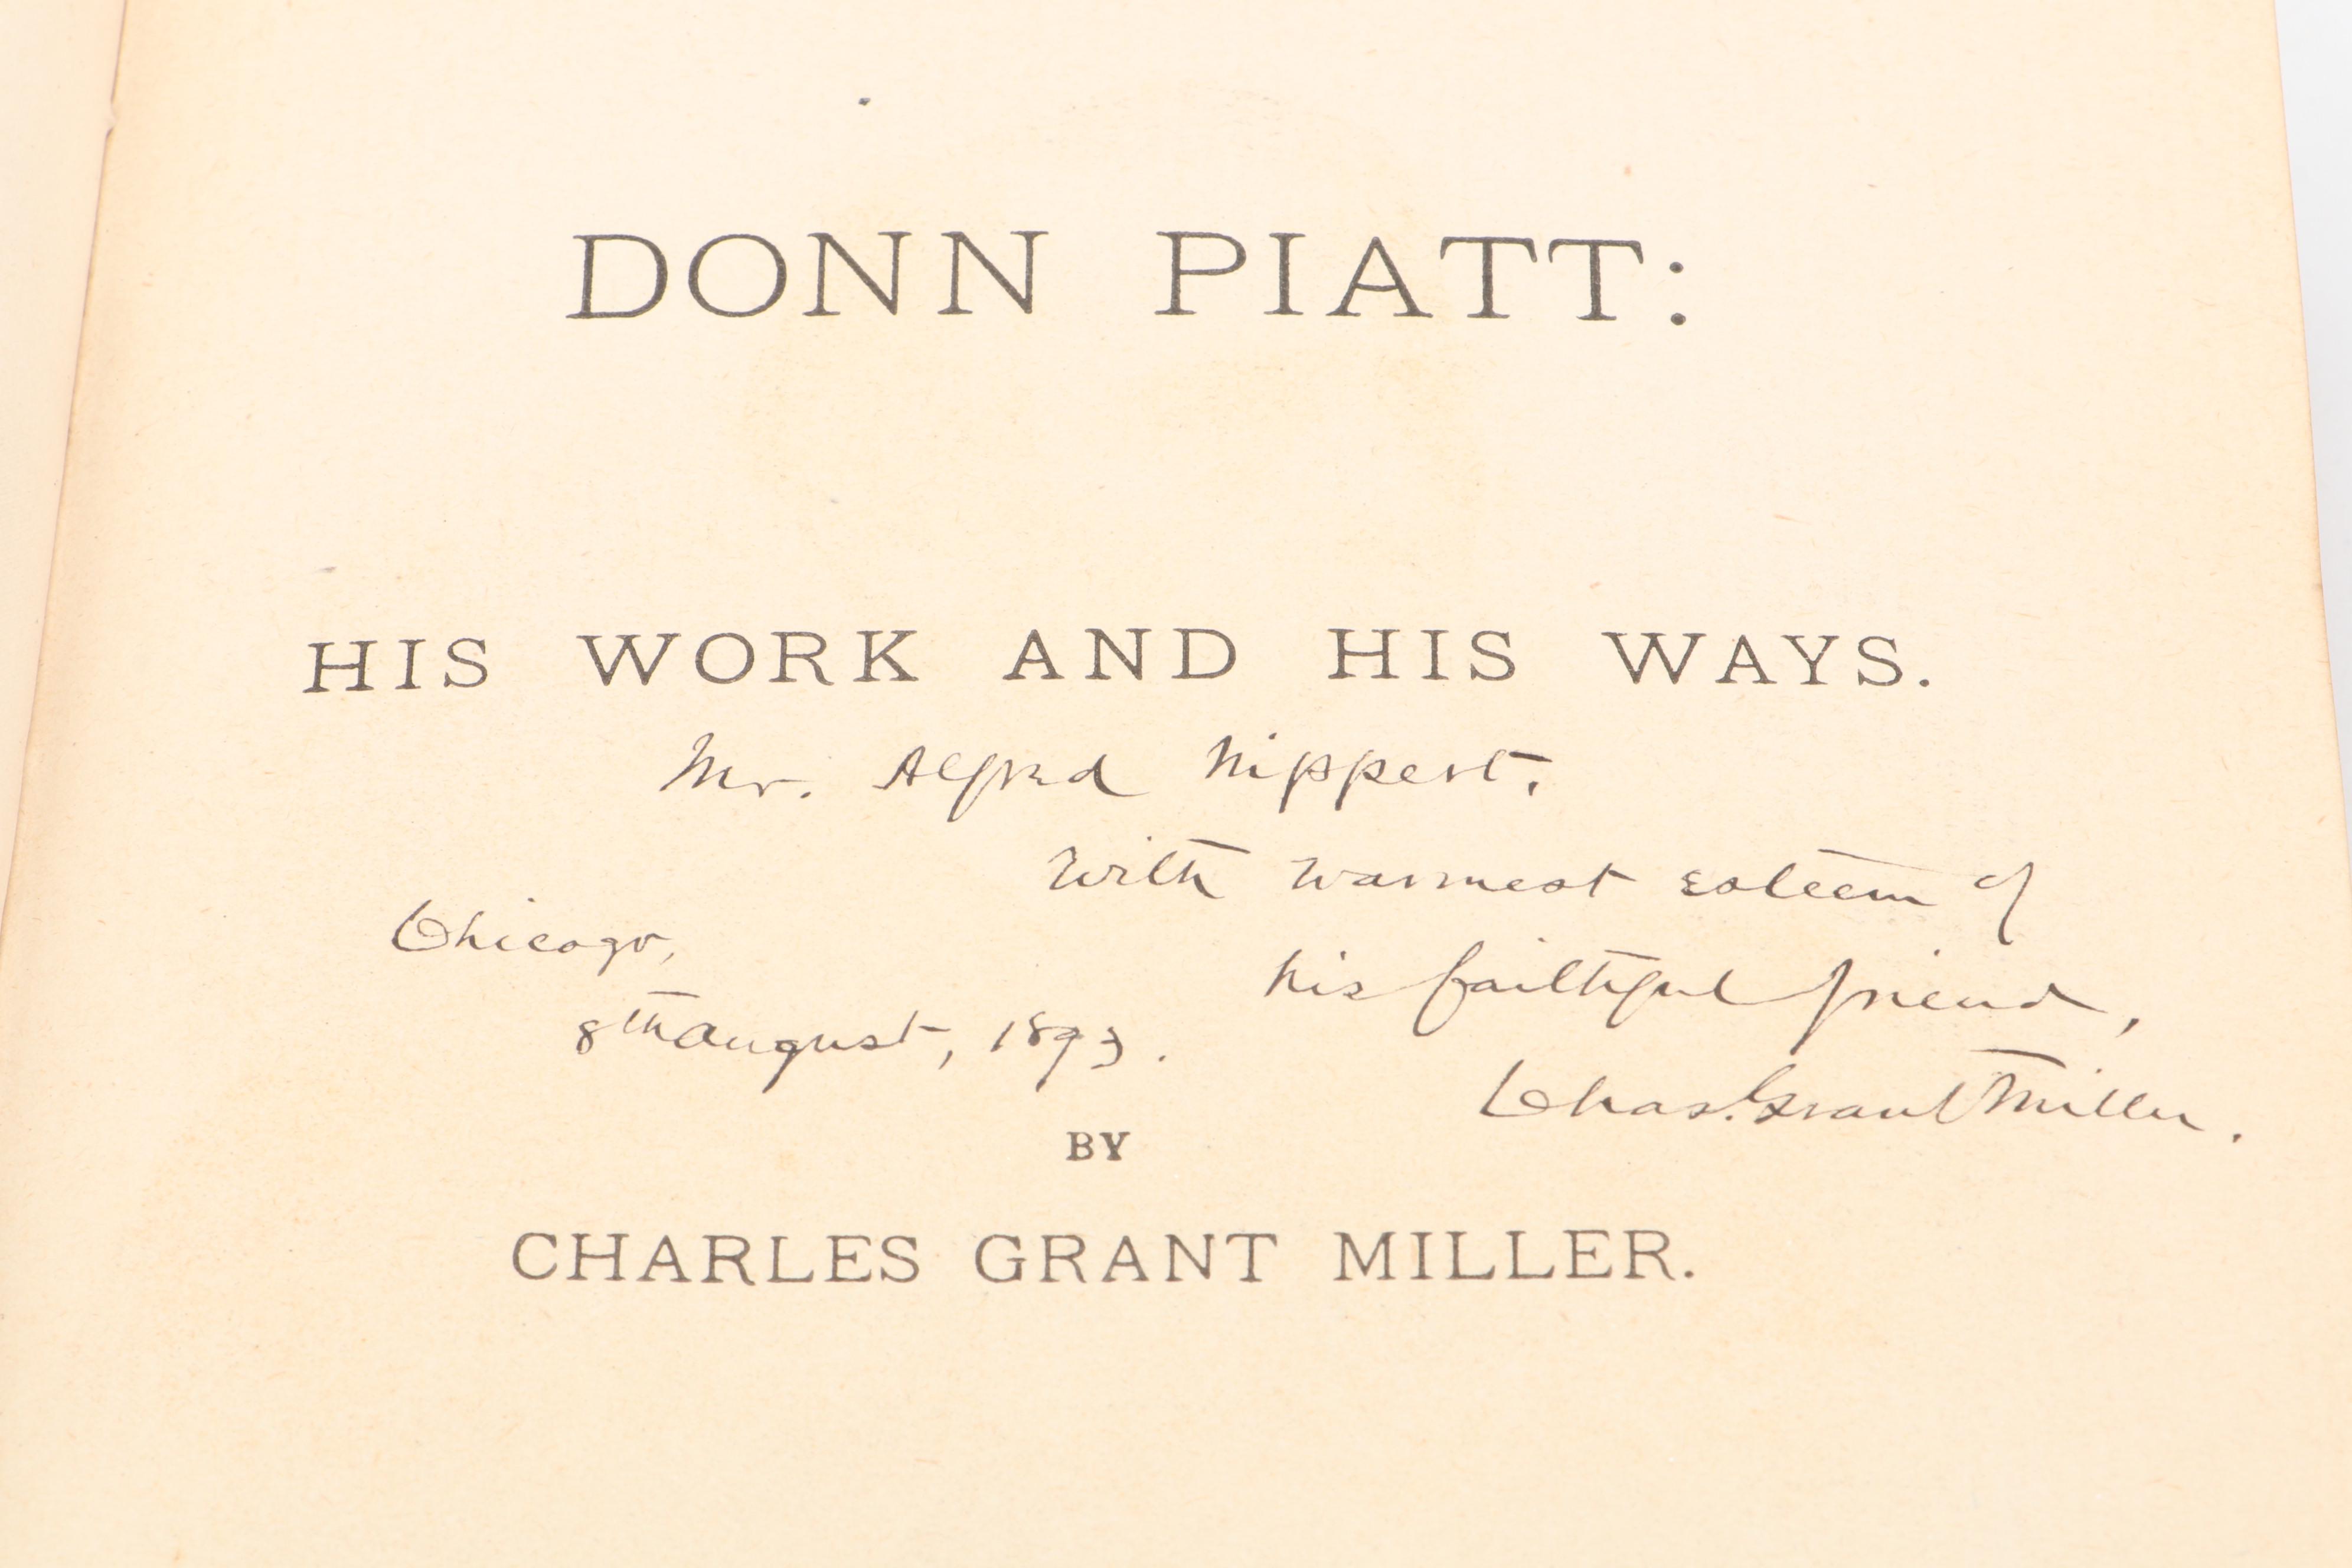 DONN PIATT:
HIS WORK AND HIS WAYS.
Mr. Alfred Nippert,
with warmest esteem of
his faithful friend,
Chas. Grant Miller.
Chicago,
8th August, 1893.
BY
CHARLES GRANT MILLER.